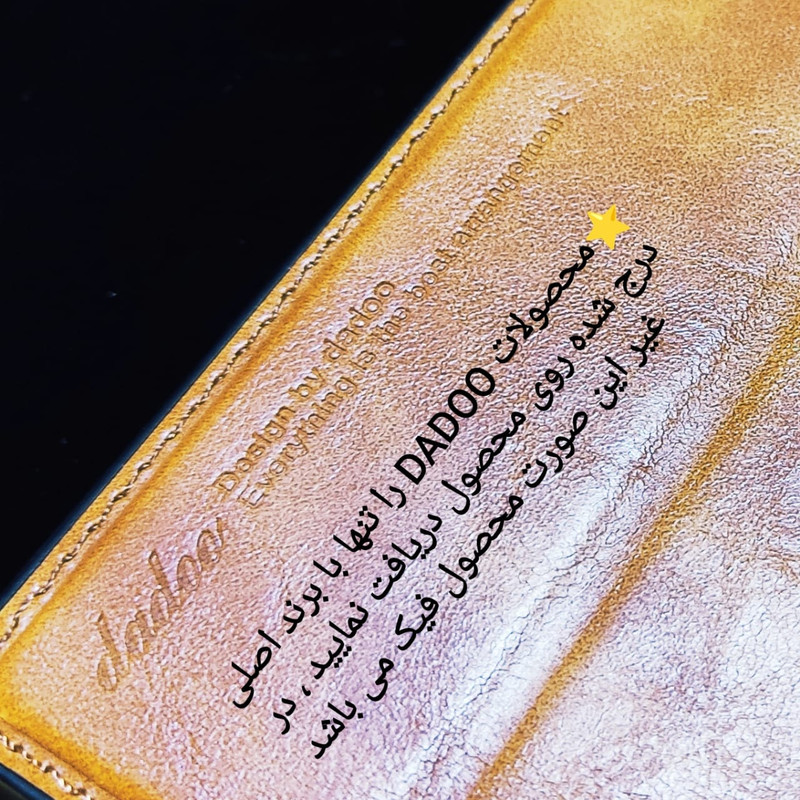 dadoo
Design by dadoo
Everything is the best arrangement
⭐محصولات DADOO را تنها با برند اصلی
درج شده روی محصول دریافت نمایید ، در
غیر این صورت محصول فیک می باشد